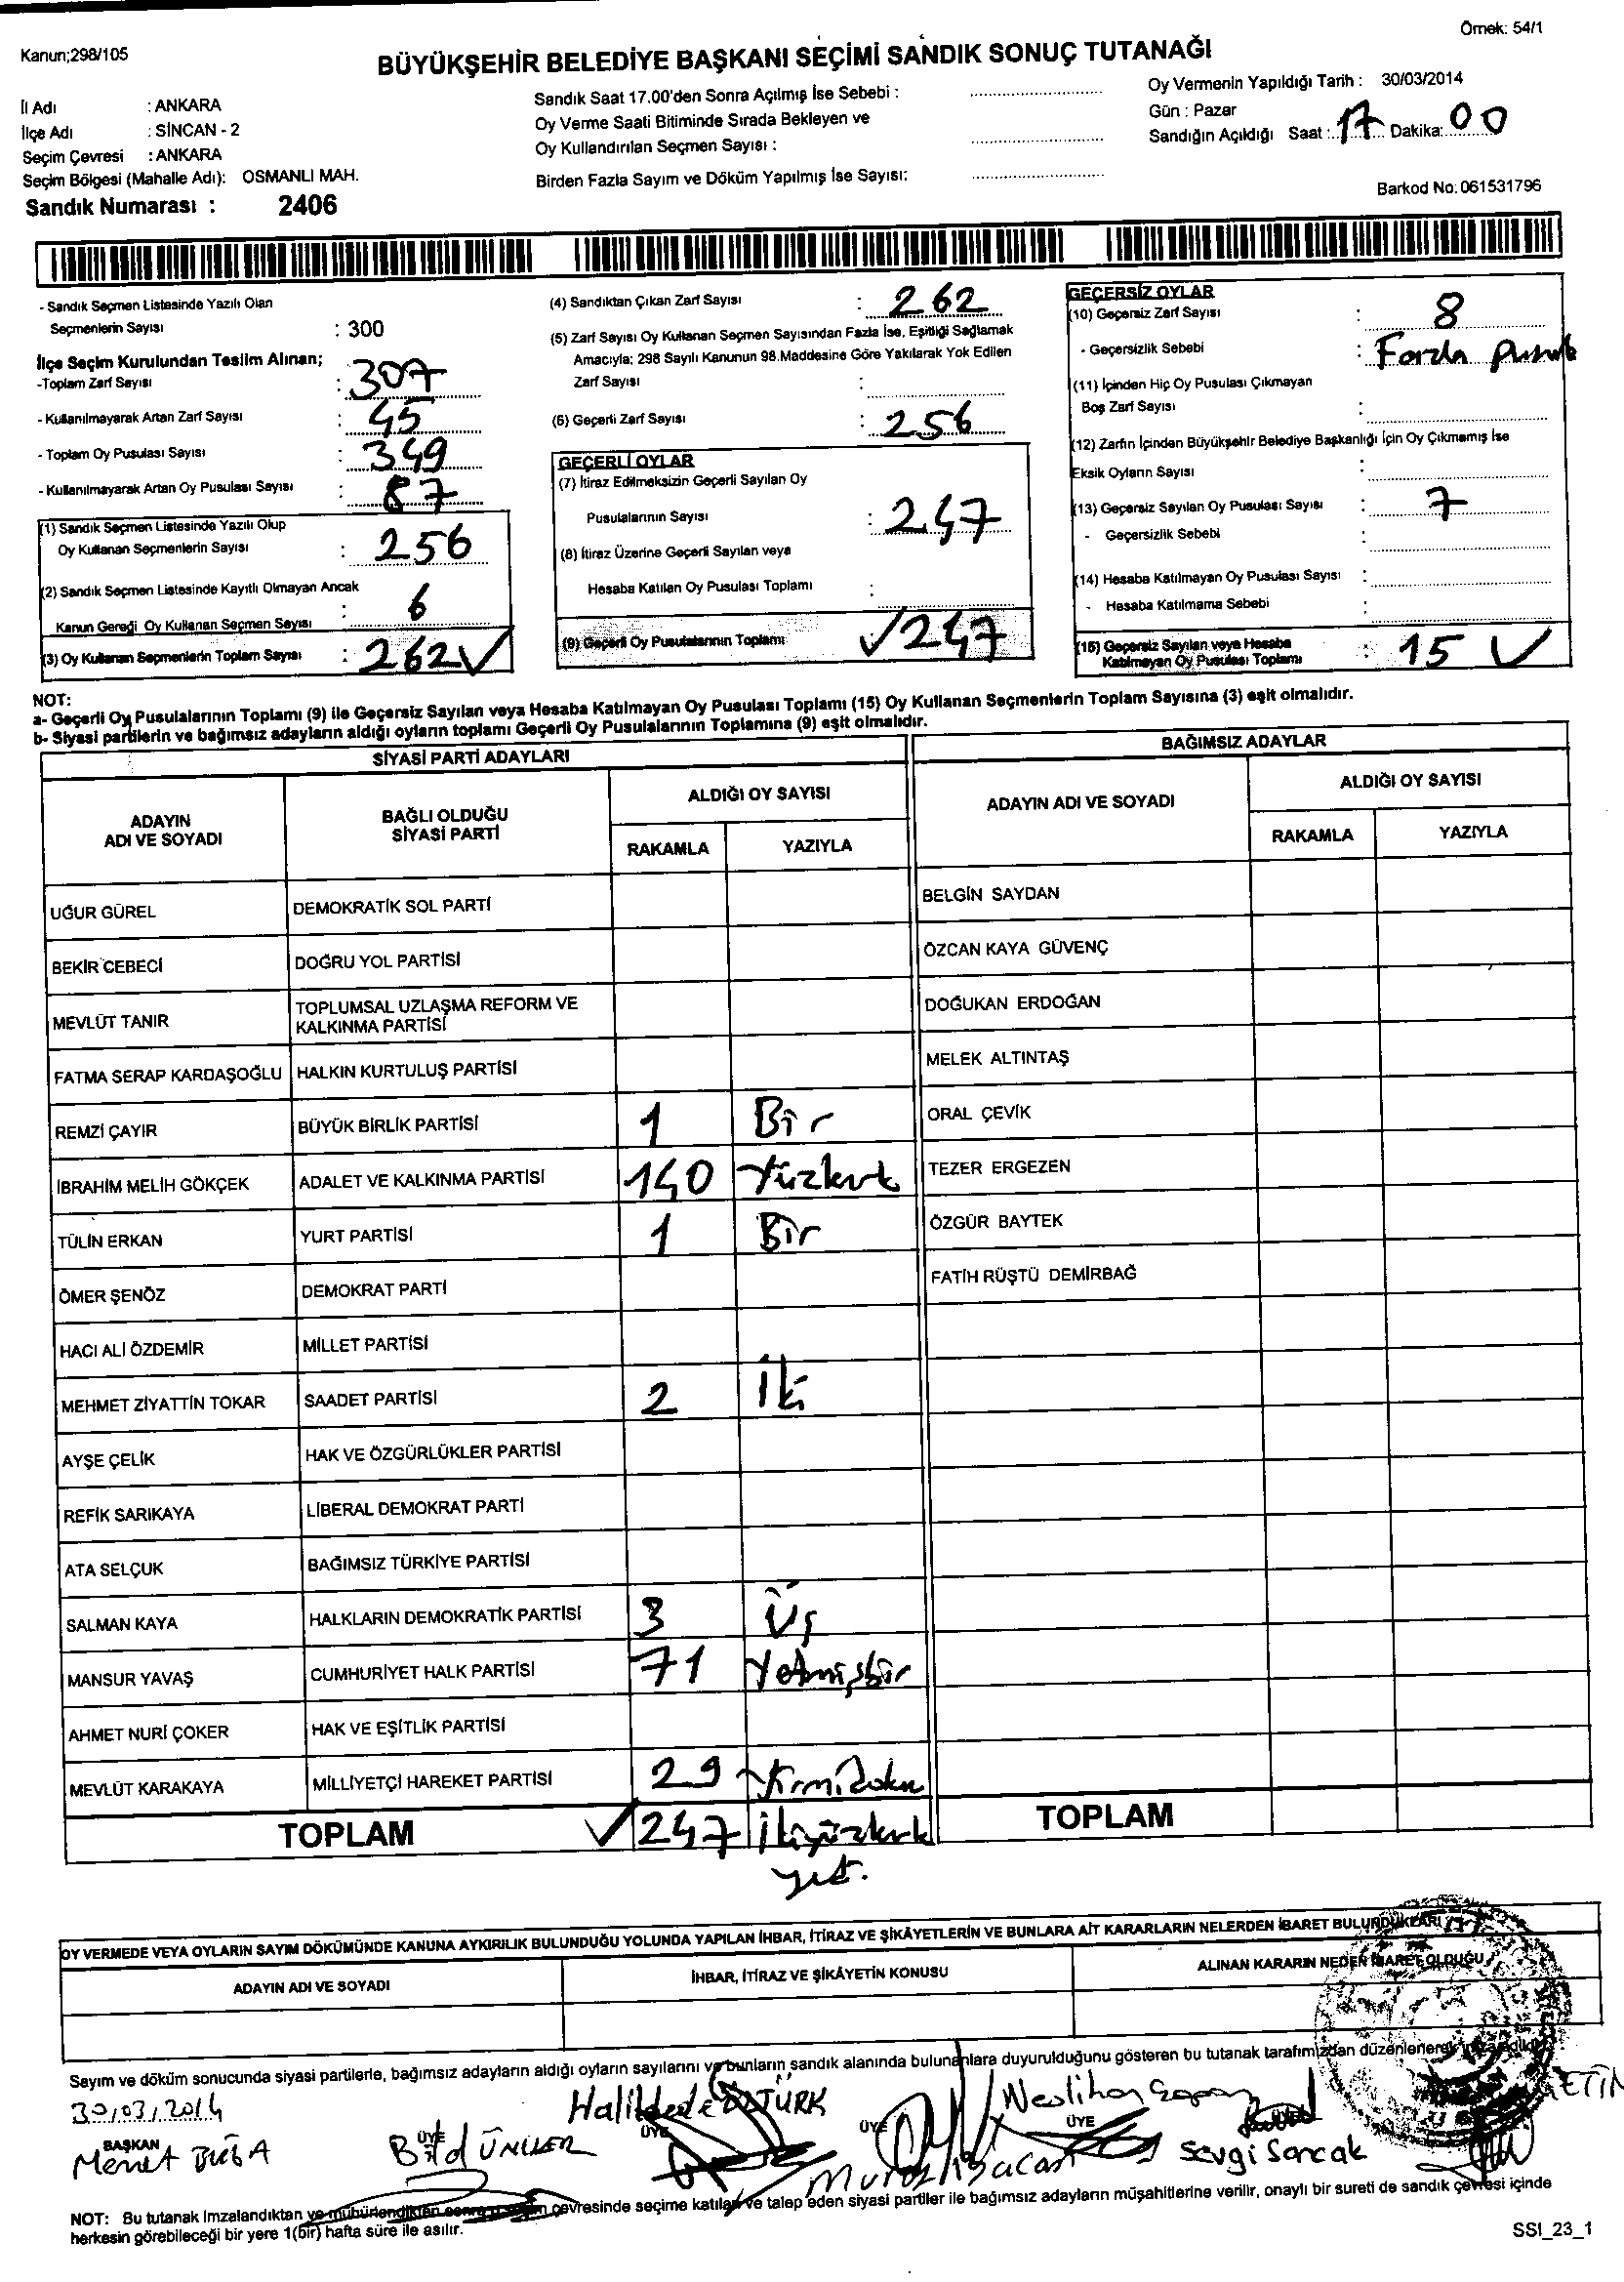 Örnek: 54/1
Kanun;298/105
BÜYÜKŞEHİR BELEDİYE BAŞKANI SEÇİMİ SANDIK SONUÇ TUTANAĞI
İl Adı : ANKARA
İlçe Adı : SİNCAN - 2
Seçim Çevresi : ANKARA
Seçim Bölgesi (Mahalle Adı): OSMANLI MAH.
Sandık Numarası : 2406
Sandık Saat 17.00'den Sonra Açılmış İse Sebebi :
Oy Verme Saati Bitiminde Sırada Bekleyen ve
Oy Kullandırılan Seçmen Sayısı :
Birden Fazla Sayım ve Döküm Yapılmış İse Sayısı:
Oy Vermenin Yapıldığı Tarih : 30/03/2014
Gün : Pazar
Sandığın Açıldığı Saat : 17 Dakika: 00
Barkod No: 061531796
- Sandık Seçmen Listesinde Yazılı Olan
Seçmenlerin Sayısı : 300
İlçe Seçim Kurulundan Teslim Alınan;
-Toplam Zarf Sayısı : 307
- Kullanılmayarak Artan Zarf Sayısı : 45
- Toplam Oy Pusulası Sayısı : 349
- Kullanılmayarak Artan Oy Pusulası Sayısı : 87
(1) Sandık Seçmen Listesinde Yazılı Olup
Oy Kullanan Seçmenlerin Sayısı : 256
(2) Sandık Seçmen Listesinde Kayıtlı Olmayan Ancak
Kanun Gereği Oy Kullanan Seçmen Sayısı : 6
(3) Oy Kullanan Seçmenlerin Toplam Sayısı : 262 ✓
(4) Sandıktan Çıkan Zarf Sayısı : 262
(5) Zarf Sayısı Oy Kullanan Seçmen Sayısından Fazla İse, Eşitliği Sağlamak
Amacıyla; 298 Sayılı Kanunun 98.Maddesine Göre Yakılarak Yok Edilen
Zarf Sayısı :
(6) Geçerli Zarf Sayısı : 256
GEÇERLİ OYLAR
(7) İtiraz Edilmeksizin Geçerli Sayılan Oy
Pusulalarının Sayısı : 247
(8) İtiraz Üzerine Geçerli Sayılan veya
Hesaba Katılan Oy Pusulası Toplamı :
(9) Geçerli Oy Pusulalarının Toplamı ✓ 247
GEÇERSİZ OYLAR
(10) Geçersiz Zarf Sayısı : 8
- Geçersizlik Sebebi :
(11) İçinden Hiç Oy Pusulası Çıkmayan
Boş Zarf Sayısı :
(12) Zarfın İçinden Büyükşehir Belediye Başkanlığı İçin Oy Çıkmamış İse
Eksik Oyların Sayısı :
(13) Geçersiz Sayılan Oy Pusulası Sayısı : 7
- Geçersizlik Sebebi :
(14) Hesaba Katılmayan Oy Pusulası Sayısı :
- Hesaba Katılmama Sebebi :
(15) Geçersiz Sayılan veya Hesaba
Katılmayan Oy Pusulası Toplamı : 15 ✓
NOT:
a- Geçerli Oy Pusulalarının Toplamı (9) ile Geçersiz Sayılan veya Hesaba Katılmayan Oy Pusulası Toplamı (15) Oy Kullanan Seçmenlerin Toplam Sayısına (3) eşit olmalıdır.
b- Siyasi partilerin ve bağımsız adayların aldığı oyların toplamı Geçerli Oy Pusulalarının Toplamına (9) eşit olmalıdır.
SİYASİ PARTİ ADAYLARI
ADAYIN
ADI VE SOYADI
BAĞLI OLDUĞU
SİYASİ PARTİ
ALDIĞI OY SAYISI
RAKAMLA YAZIYLA
UĞUR GÜREL DEMOKRATİK SOL PARTİ
BEKİR CEBECİ DOĞRU YOL PARTİSİ
MEVLÜT TANIR TOPLUMSAL UZLAŞMA REFORM VE
KALKINMA PARTİSİ
FATMA SERAP KARDAŞOĞLU HALKIN KURTULUŞ PARTİSİ
REMZİ ÇAYIR BÜYÜK BİRLİK PARTİSİ 1 Bir
İBRAHİM MELİH GÖKÇEK ADALET VE KALKINMA PARTİSİ 140 Yüzkırk
TÜLİN ERKAN YURT PARTİSİ 1 Bir
ÖMER ŞENÖZ DEMOKRAT PARTİ
HACI ALİ ÖZDEMİR MİLLET PARTİSİ
MEHMET ZİYATTİN TOKAR SAADET PARTİSİ 2 İki
AYŞE ÇELİK HAK VE ÖZGÜRLÜKLER PARTİSİ
REFİK SARIKAYA LİBERAL DEMOKRAT PARTİ
ATA SELÇUK BAĞIMSIZ TÜRKİYE PARTİSİ
SALMAN KAYA HALKLARIN DEMOKRATİK PARTİSİ 3 Üç
MANSUR YAVAŞ CUMHURİYET HALK PARTİSİ 71 Yetmişbir
AHMET NURİ ÇOKER HAK VE EŞİTLİK PARTİSİ
MEVLÜT KARAKAYA MİLLİYETÇİ HAREKET PARTİSİ 29
TOPLAM ✓ 247 ikiyüzkırk
yed.
BAĞIMSIZ ADAYLAR
ADAYIN ADI VE SOYADI
ALDIĞI OY SAYISI
RAKAMLA YAZIYLA
BELGİN SAYDAN
ÖZCAN KAYA GÜVENÇ
DOĞUKAN ERDOĞAN
MELEK ALTINTAŞ
ORAL ÇEVİK
TEZER ERGEZEN
ÖZGÜR BAYTEK
FATİH RÜŞTÜ DEMİRBAĞ
TOPLAM
OY VERMEDE VEYA OYLARIN SAYIM DÖKÜMÜNDE KANUNA AYKIRILIK BULUNDUĞU YOLUNDA YAPILAN İHBAR, İTİRAZ VE ŞİKÂYETLERİN VE BUNLARA AİT KARARLARIN NELERDEN İBARET BULUNDUKLARI
ADAYIN ADI VE SOYADI İHBAR, İTİRAZ VE ŞİKÂYETİN KONUSU ALINAN KARARIN NEDEN İBARET OLDUĞU
Sayım ve döküm sonucunda siyasi partilerle, bağımsız adayların aldığı oyların sayılarını ve bunların sandık alanında bulunanlara duyurulduğunu gösteren bu tutanak tarafımızdan düzenlenerek imzalandı.
30/03/2014
BAŞKAN ÜYE ÜYE ÜYE ÜYE
ÖZTÜRK
Neslihan
Sevgi Sarcak
NOT: Bu tutanak imzalandıktan ve mühürlendikten sonra seçim çevresinde seçime katılan ve talep eden siyasi partiler ile bağımsız adayların müşahitlerine verilir, onaylı bir sureti de sandık çevresi içinde
herkesin görebileceği bir yere 1(bir) hafta süre ile asılır.
SSI_23_1